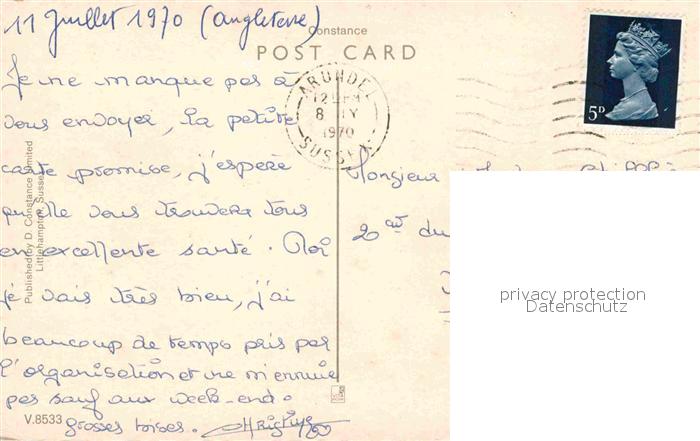 11 Juillet 1970 (Angleterre)
Constance
POST CARD
Je ne manque pas à
vous envoyer, la petite
carte promise, j'espère
qu'elle vous trouvera tous
en excellente santé. Moi
je vais très bien, j'ai
beaucoup de temps pris par
l'organisation et ne m'ennuie
pas sauf aux week-end.
grosses bises. CHRISTINE
V.8533
Published by D. Constance Limited
Littlehampton, Sussex
ARUNDEL
12
8
1970
SUSSEX
5D
Monsieur
2 du
privacy protection
Datenschutz